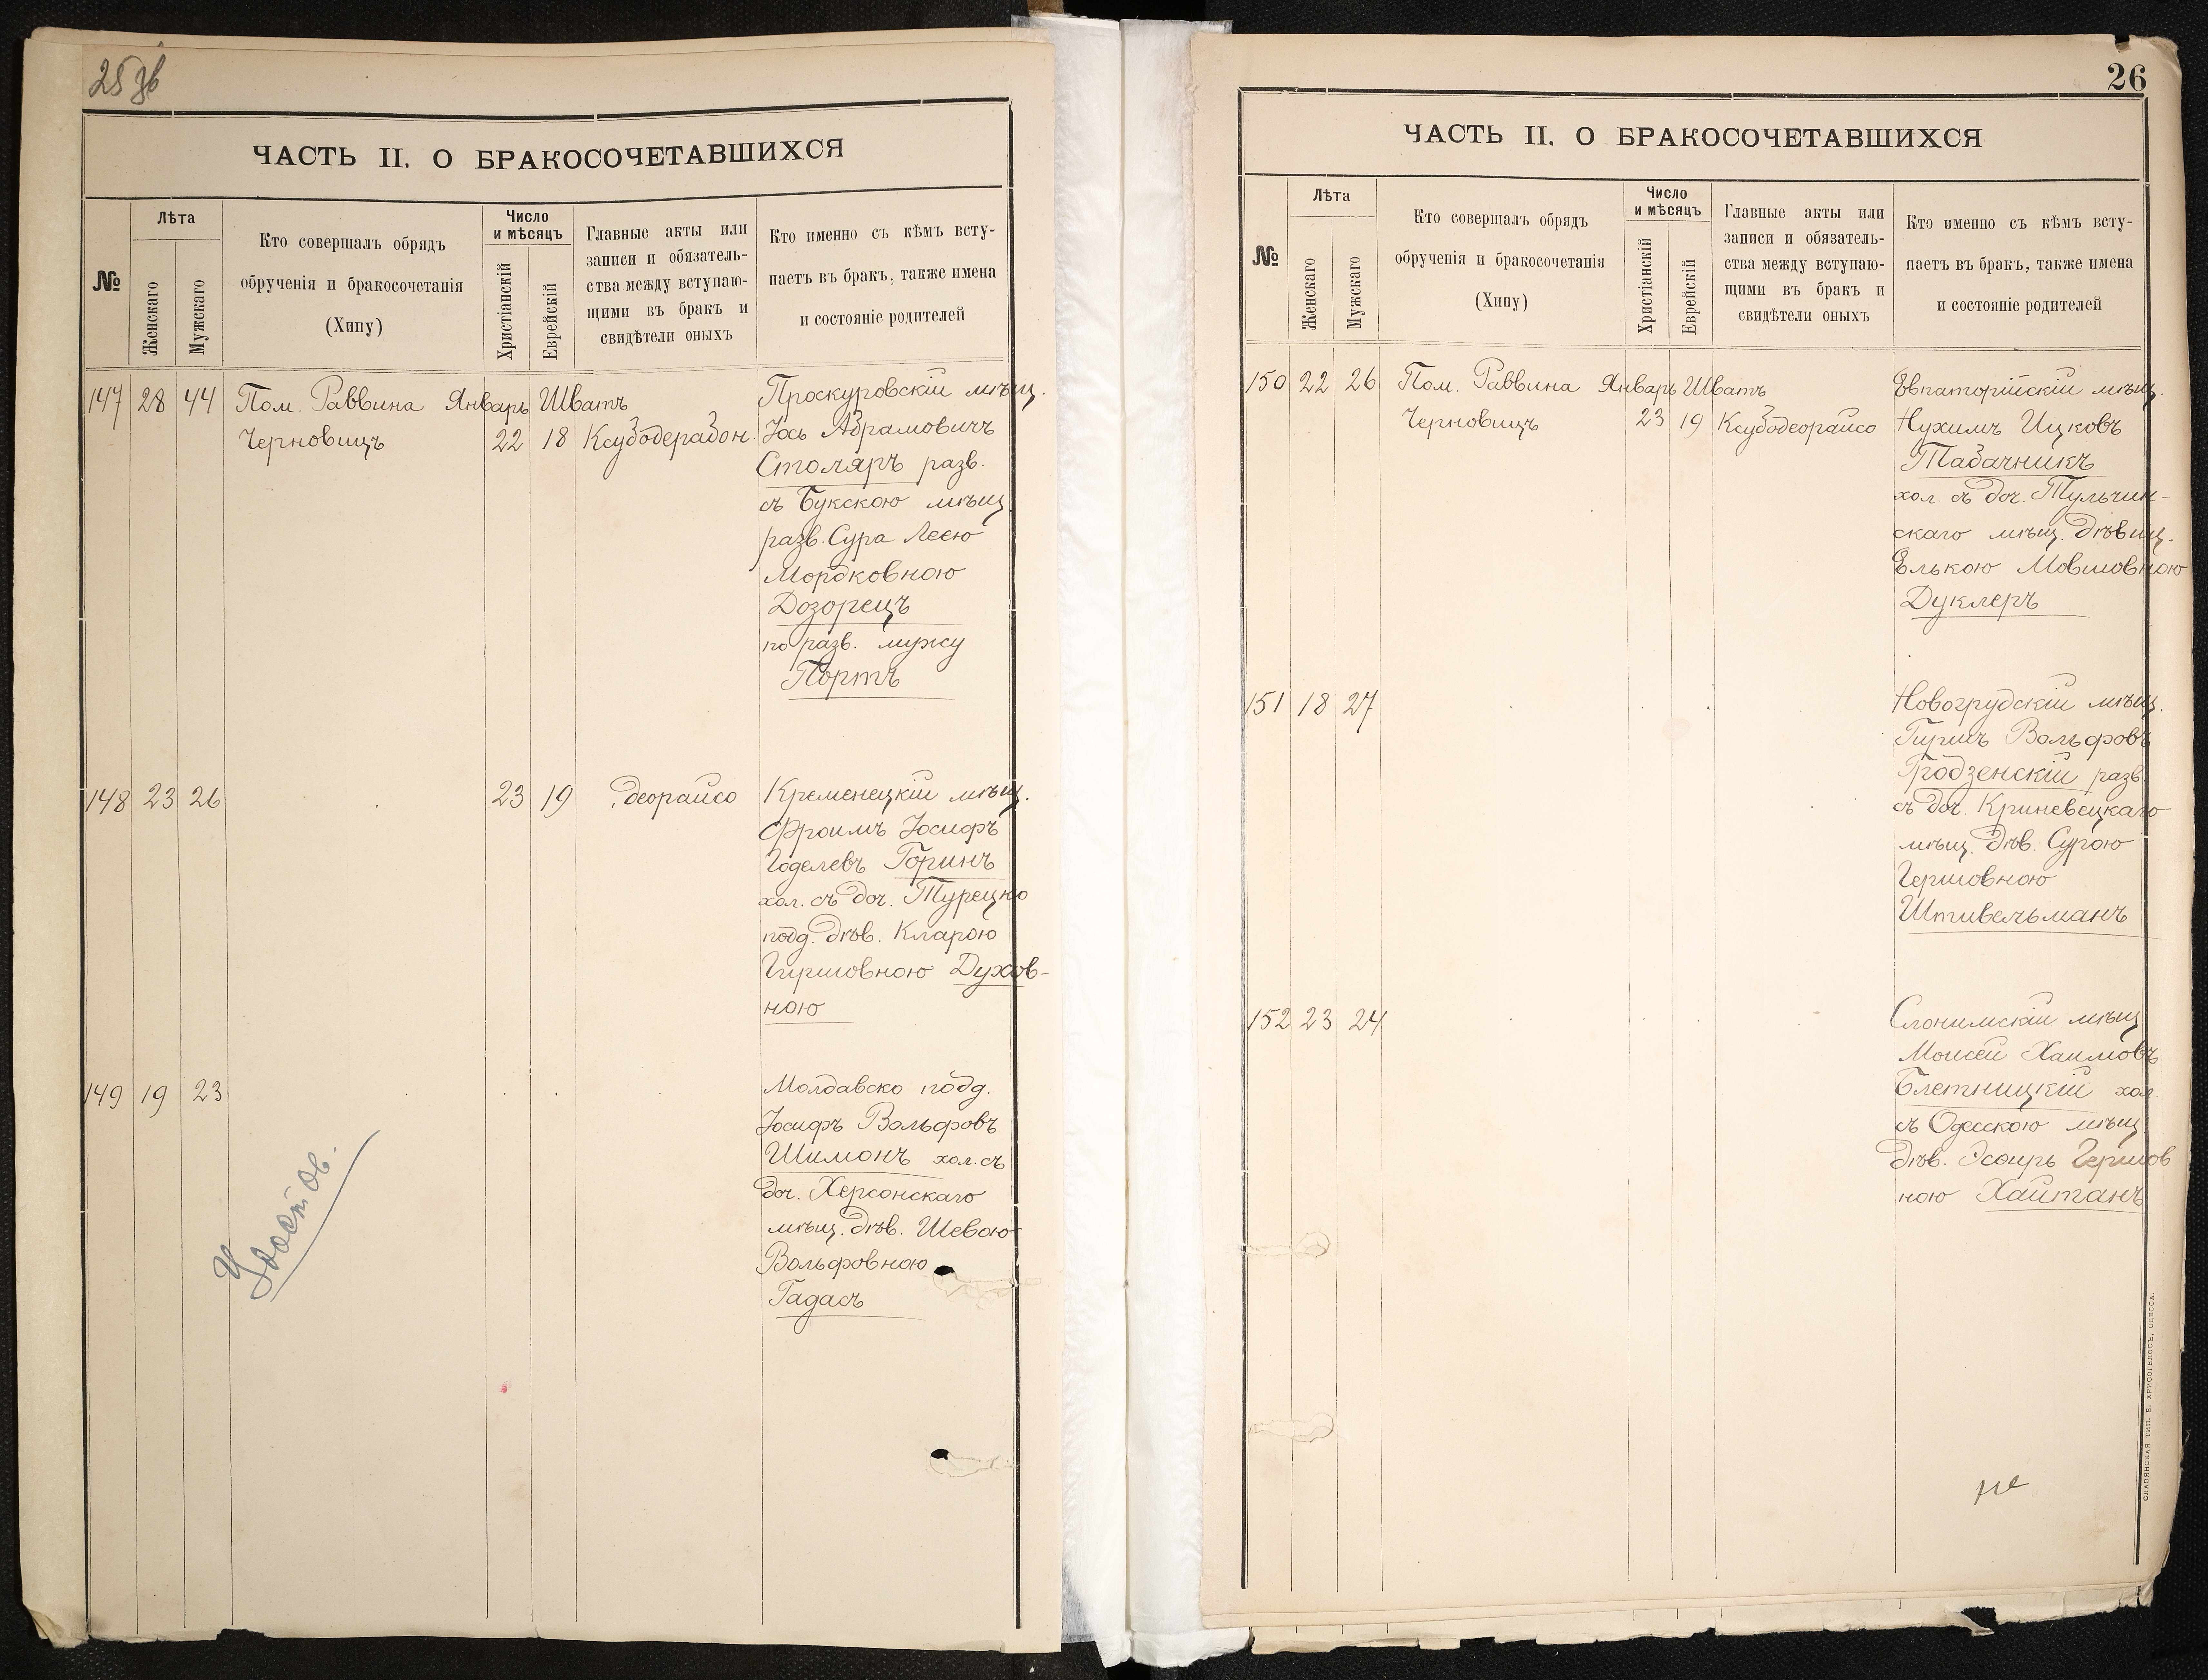 ЧАСТЬ II. О БРАКОСОЧЕТАВШИХСЯ
№
Лѣта
Женскаго
Мужскаго
Кто совершалъ обрядъ
обрученія и бракосочетанія
(Хипу)
Число
и мѣсяцъ
Христіанскій
Еврейскій
Главные акты или
записи и обязатель-
ства между вступаю-
щими въ бракъ и
свидѣтели оныхъ
Кто именно съ кѣмъ всту-
паетъ въ бракъ, также имена
и состояніе родителей
147 28 44 Пом. Раввина Январь Шватъ
Черновицъ 22 18 Ксубодерабон.
Проскуровскій мѣщ.
Іось Абрамовичъ
Столяръ разв.
съ Букскою мѣщ.
разв. Сура Леею
Мордковною
Дозорецъ
по разв. мужу
Портъ
148 23 26 23 19 деорайсо
Кременецкій мѣщ.
Фроимъ Іосифъ
Годелевъ Горинъ
хол. съ доч. Турецко
подд. дѣв. Кларою
Гиршовною Духов-
ною
149 19 23
Молдавско подд.
Іосифъ Вольфовъ
Шимонъ хол. съ
доч. Херсонскаго
мѣщ. дѣв. Шевою
Вольфовною
Гадасъ
26
ЧАСТЬ II. О БРАКОСОЧЕТАВШИХСЯ
№
Лѣта
Женскаго
Мужскаго
Кто совершалъ обрядъ
обрученія и бракосочетанія
(Хипу)
Число
и мѣсяцъ
Христіанскій
Еврейскій
Главные акты или
записи и обязатель-
ства между вступаю-
щими въ бракъ и
свидѣтели оныхъ
Кто именно съ кѣмъ всту-
паетъ въ бракъ, также имена
и состояніе родителей
150 22 26 Пом. Раввина Январь Шватъ
Черновицъ 23 19 Ксубодеорайсо
Евпаторійскій мѣщ.
Нухимъ Ицковъ
Табачникъ
хол. съ доч. Тульчин-
скаго мѣщ. дѣвиц.
Елькою Мовшовною
Дуклеръ
151 18 27
Новогрудскій мѣщ.
Гиршъ Вольфовъ
Гродзенскій разв.
съ доч. Криневецкаго
мѣщ. дѣв. Сурою
Гершовною
Штивельманъ
152 23 24
Слонимскій мѣщ.
Моисей Хаимовъ
Блетницкій хол.
съ Одесскою мѣщ.
дѣв. Эсѳирь Гершов
ною Хайтанъ
СЛАВЯНСКАЯ ТИП. Е. ХРИСОГЕЛОСЪ, ОДЕССА.